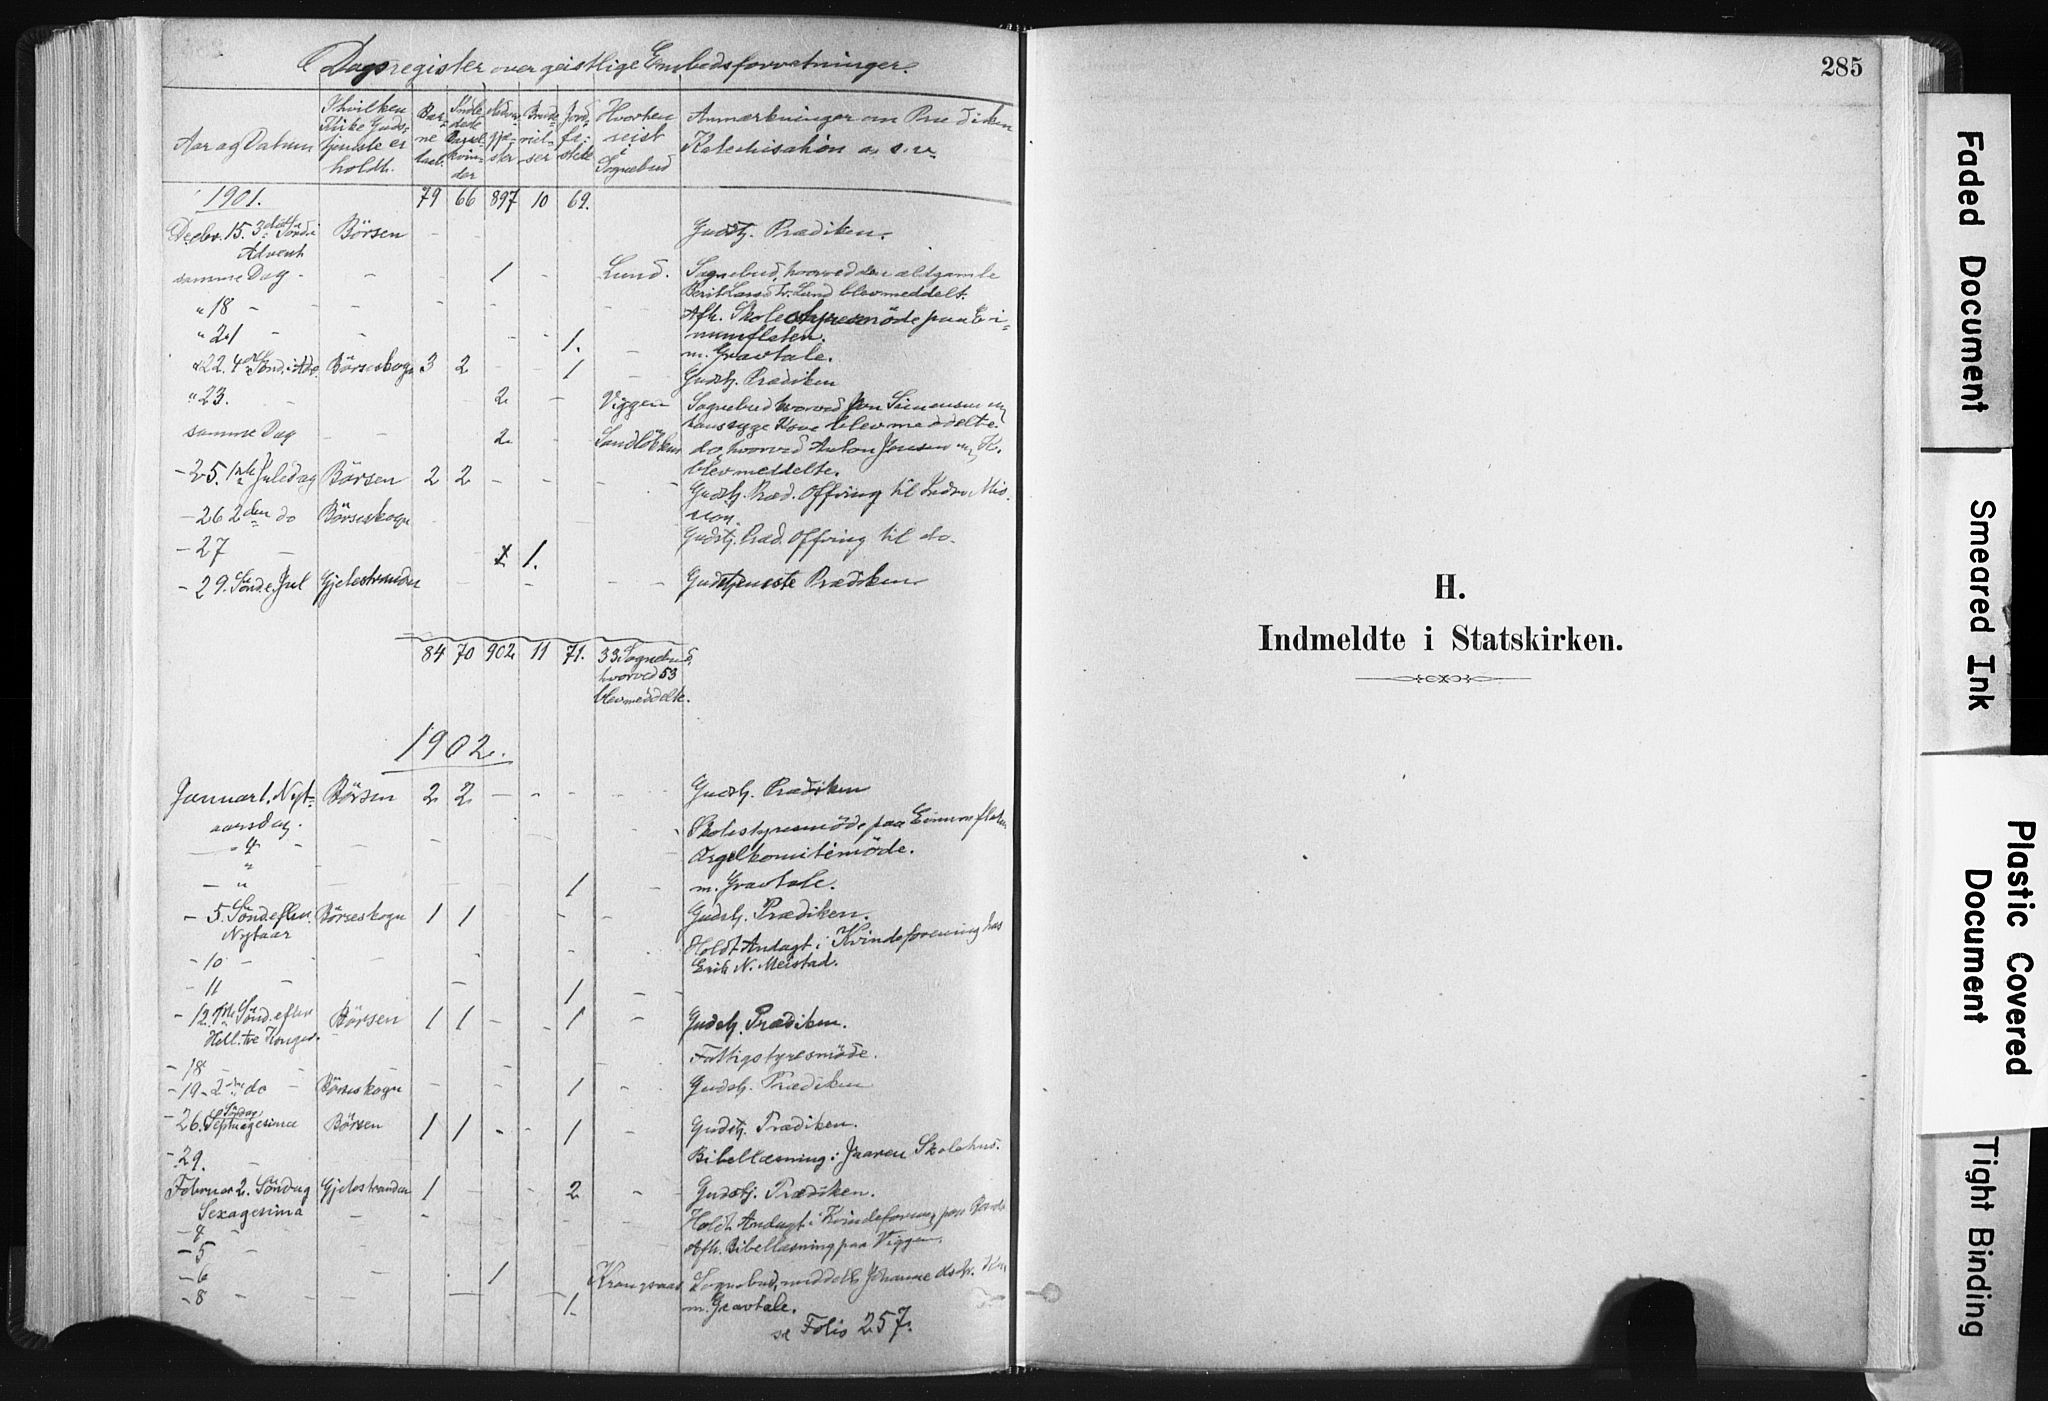 Dagsregister over geistlige Embedsforretninger.
Aar og Datum
I hvilken Kirke Guds- tjeneste er holdt.
Bar- ne daab.
Indle- dede Barsel- kvin- der
Altergjæ- ster
Brude- viel- ser
Jord- fæ- stede
Hvorhen reist i Sognebud
Anmærkninger om Prædiken Katechisation o. s. v.
1901. 79 66 897 10 69.
Decbr. 15. 3die Sönd. i Advent Börsen - - - - - Gudstj. Prædiken.
samme Dag - - 1 - Lund. Sognebud, hvorved den ældgamle
Berit Larsd. Lund blev meddelt.
" 18 - - Afh. Skolestyremöde paa Ei-
numflaten.
" 21 - - - - 1. - m. Gravtale.
" 22. 4de Sönd. i Adv. Börseskogn 3 2 - - 1 - Gudstj. Prædiken
" 23. - 2 - Viggen Sognebud hvorved Jon Simensen og
hans syge Kone blev meddelte.
samme Dag - - 2 - Sandlökken do, hvorved Anton Jensen og K.
blev meddelte.
- 25. 1ste Juledag Börsen 2 2 - - - - Gudstj. Præd. Offring til Indre Mis-
sion.
- 26 2den do Börseskogn Gudstj. Præd. Offring til do.
- 27 - 2 1.
- 29. Sönd. e. Jul Gjelestranden - - - - - Gudstjeneste Prædiken
84 70 902 11 71. 33 Sognebud,
hvorved 53
blev meddelte.
1902.
Januar 1. Nyt-
aarsdag. Börsen 2 2 - - - - Gudstj. Prædiken
- 4 - Skolestyresmöde paa Einumflaten
" - Orgelkomitemöde.
- " - 1 - m. Gravtale.
- 5. Sönd. efter
Nytaar Börseskogn 1 1 - - Gudstj. Prædiken.
- 10 - Holdt Andagt i Kvindeforening hos
Erik N. Meistad.
- 11 - - 1 - -
- 12. 1ste Sönd. efter
Hell. tre Konger. Börsen 1 1 - - 1 - Gudstj. Prædiken.
- 18 - Fattigstyresmöde.
- 19 - 2den do - Börseskogn - - - 1 - Gudstj. Prædiken
- 26. Söndag Septuagesima Börsen 1 1 - - 1 - Gudstj. Prædiken.
- 29. - Bibellæsning i Jaaren Skolehus.
Februar 2. Söndag
Sexagesima Gjelestranden 1 - - 2 - - Gudstj. Prædiken.
- 4 - Holdt Andagt i Kvindeforening paa
- 5 - Afh. Bibellæsning paa Viggen.
- 6 - 1 Krangsaas Sognebud, meddelt Johanne
- 8 - 1. m. Gravtale.
se Folio 257.
285
H.
Indmeldte i Statskirken.
Faded Document
Smeared Ink
Plastic Covered
Document
Tight Binding